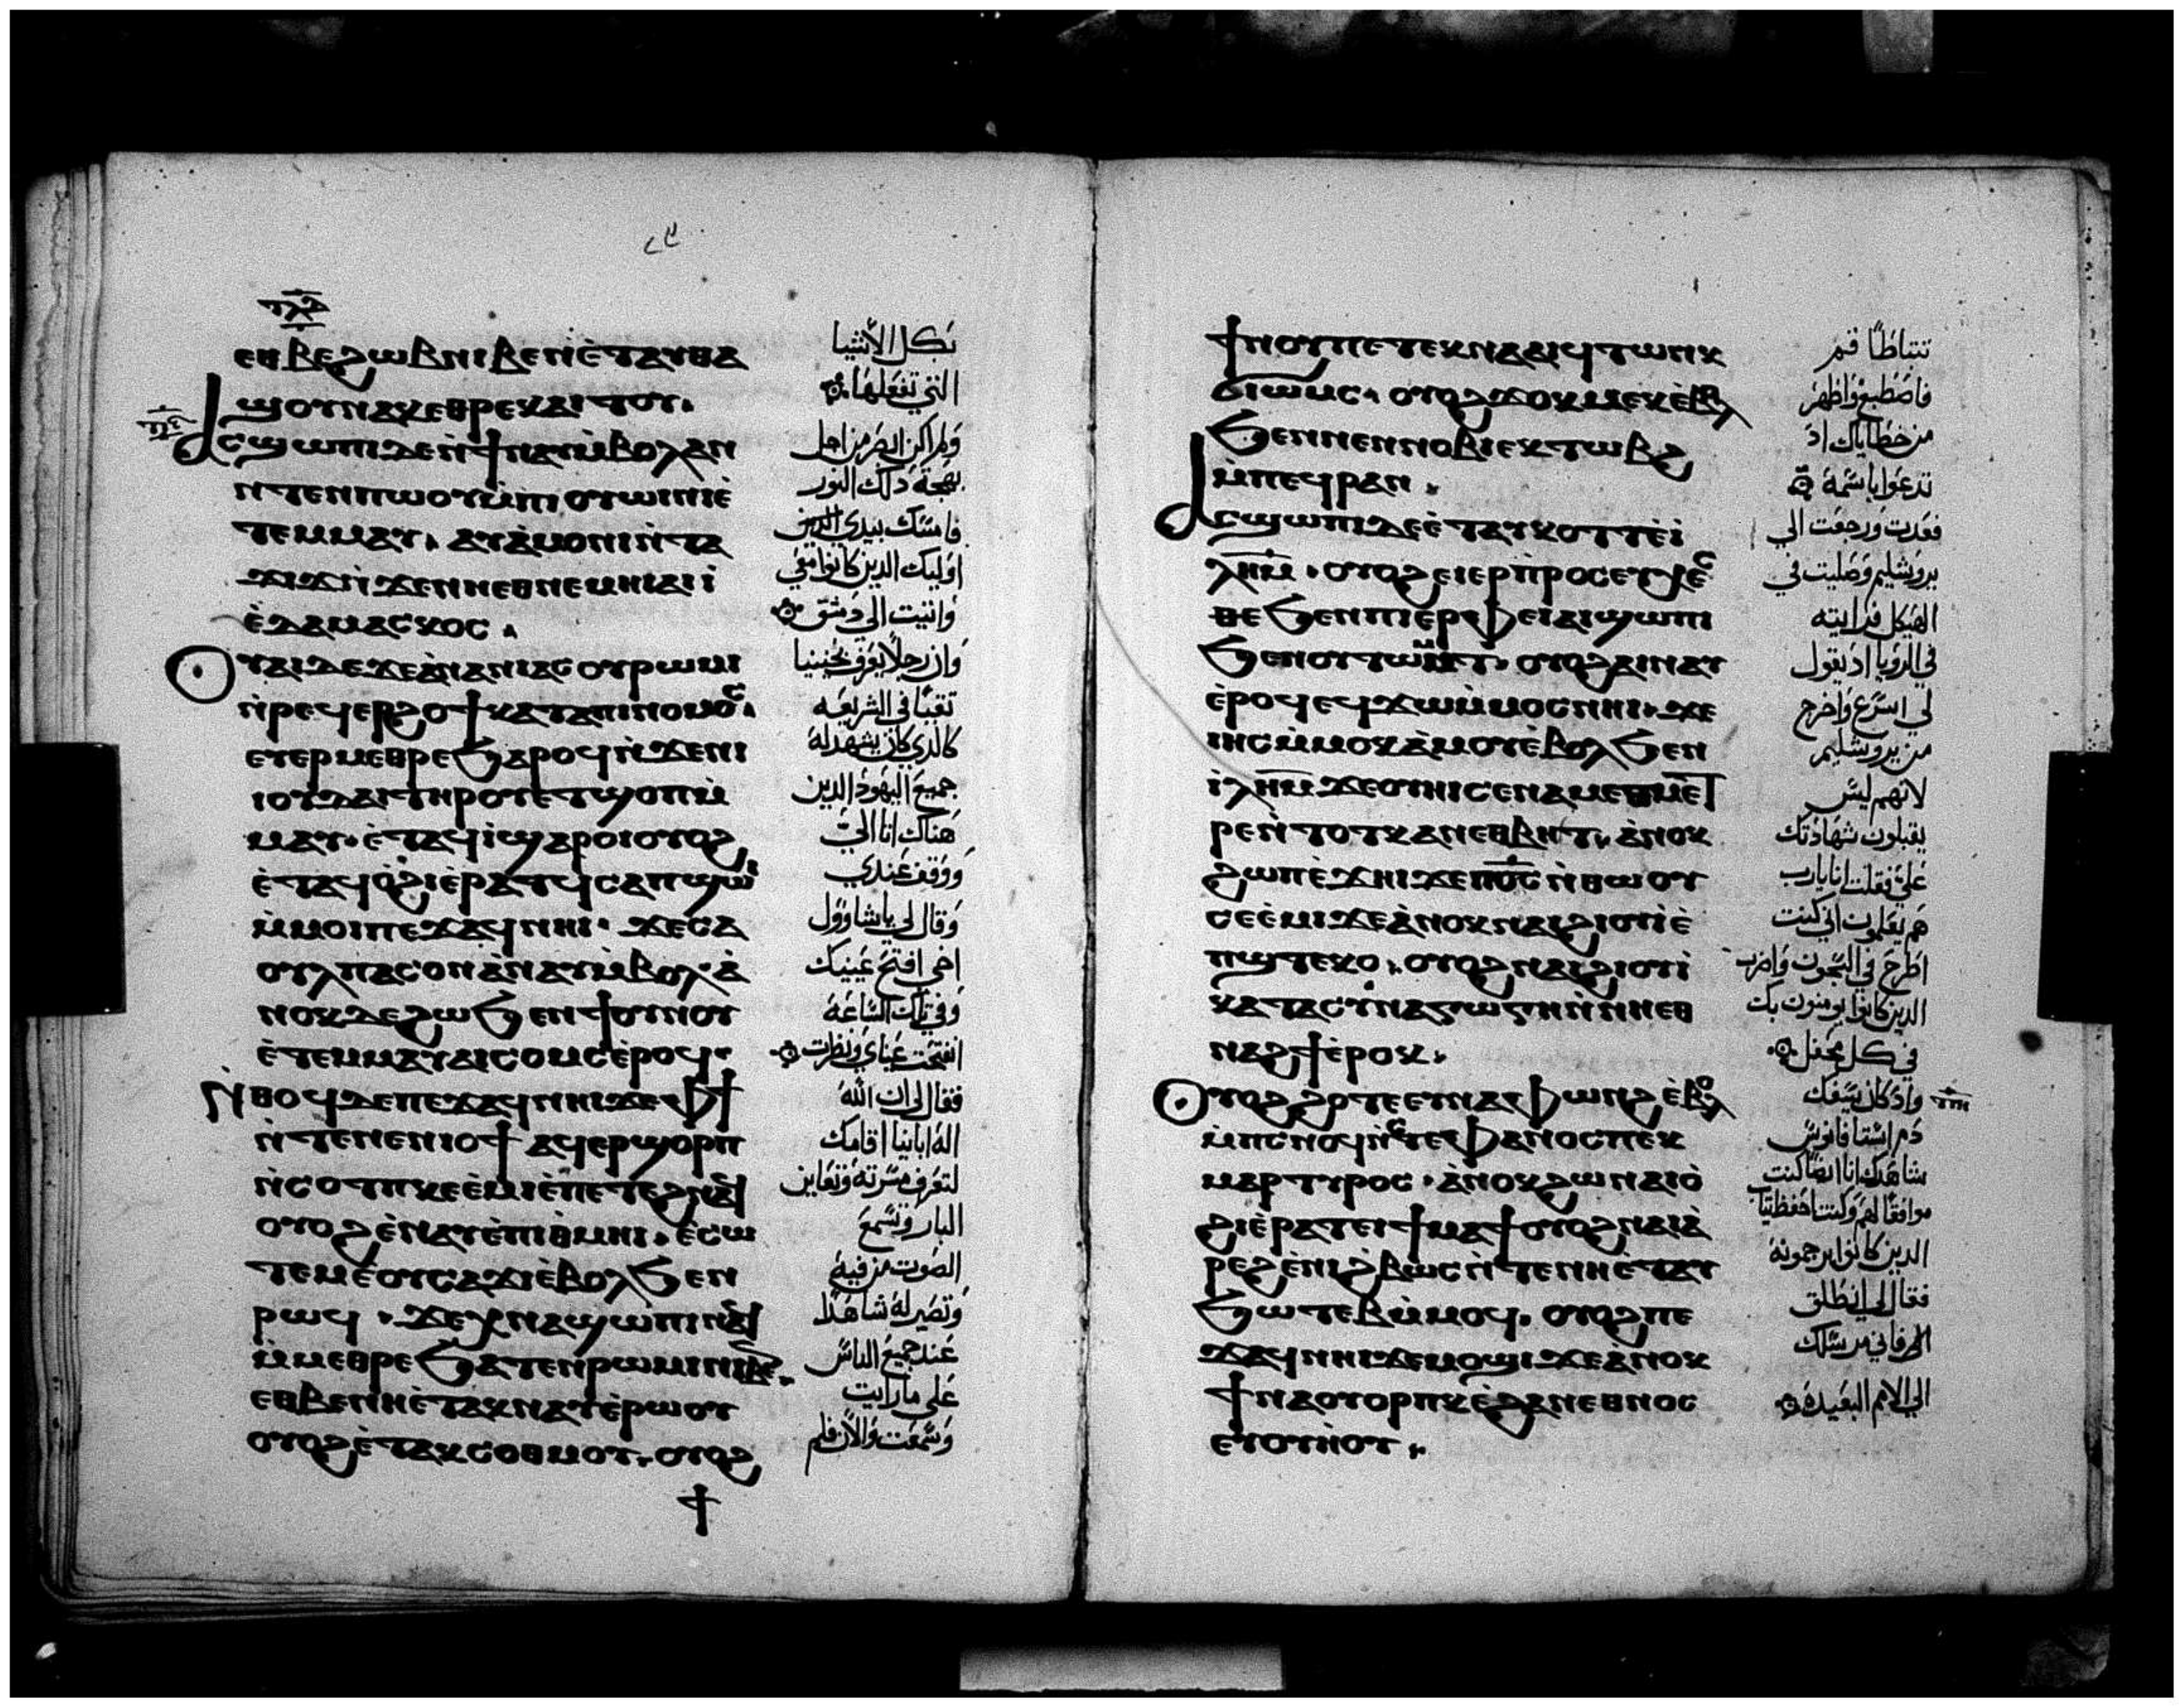 ⲉⲑⲃⲉϩⲱⲃⲛⲓⲃⲉⲛⲉ̀ⲧⲁⲩⲑⲁ
ϣⲟⲩⲛⲁⲕⲉⲑⲣⲉⲕⲁⲓⲧⲟⲩ.
ⲁⲥϣⲱⲡⲓⲇⲉⲛ̀ϯⲛⲁⲩⲙ̀ⲃⲟⲗⲁⲛ
ⲛⲧⲉⲛⲡⲱⲟⲩⲙ̀ⲡⲓⲟⲩⲱⲓⲛⲓⲉ̀
ⲧⲉⲙⲙⲁⲩ. ⲁⲩⲁ̀ⲙⲟⲛⲓⲛ̀ⲧⲁ
ϫⲓϫⲛ̀ϫⲉⲛⲛⲉⲑⲛⲉⲙⲏⲓⲁⲓⲓ̀
ⲉ̀ⲇⲁⲙⲁⲥⲕⲟⲥ.
ⲟⲩⲁⲓⲇⲉϫⲉⲁ̀ⲛⲁⲛⲓⲁⲥⲟⲩⲣⲱⲙⲓ
ⲛ̀ⲣⲉϥⲉⲣϩⲟϯⲕⲁⲧⲁⲡⲓⲛⲟⲙⲟⲥ.
ⲉⲧⲉⲣⲙⲉⲑⲣⲉϧⲁⲣⲟϥⲛ̀ϫⲉⲛⲓ
ⲓⲟⲩⲇⲁⲓⲧⲏⲣⲟⲩⲉⲧϣⲟⲡⲙ̀
ⲙⲁⲩ. ⲉ̀ⲧⲁϥⲓ̀ϣⲁⲣⲟⲓⲟⲩⲟϩ
ⲉ̀ⲧⲁϥⲟ̀ϩⲓⲉ̀ⲣⲁⲧϥⲥⲁⲡϣⲱⲓ
ⲙ̀ⲙⲟⲓⲡⲉϫⲁϥⲛⲏⲓ. ϫⲉⲥⲁ
ⲟⲩⲗⲡⲁⲥⲟⲛⲁ̀ⲛⲁⲩⲙ̀ⲃⲟⲗ. ⲁ̀
ⲛⲟⲕⲇⲉϩⲱϧⲉⲛϯⲟⲩⲛⲟⲩ
ⲉ̀ⲧⲉⲙⲙⲁⲩⲁⲓⲥⲟⲙⲥⲉ̀ⲣⲟϥ.
ⲛ̀ⲑⲟϥⲇⲉⲡⲉϫⲁϥⲛⲏⲓϫⲉⲫϯ
ⲛ̀ⲧⲉⲛⲉⲛⲓⲟϯ ⲁϥⲉⲣϣⲟⲣⲡ
ⲛ̀ⲥⲟⲧⲡⲕⲉⲉ̀ⲙⲓⲉ̀ⲡⲉⲧⲉϩⲛⲁϥ
ⲟⲩⲟϩⲉ̀ⲛⲁⲩⲉ̀ⲡⲓⲑ̀ⲙⲏⲓ. ⲉ̀ⲥⲱ
ⲧⲉⲙⲉ̀ⲟⲩⲥⲁϫⲓⲉ̀ⲃⲟⲗϧⲉⲛ
ⲣⲱϥ. ϫⲉⲭⲛⲁϣⲱⲡⲓⲛⲁϥ
ⲙ̀ⲙⲉⲑⲣⲉϧⲁⲧⲉⲛⲣⲱⲙⲓⲛⲓⲃⲉⲛ.
ⲉⲑⲃⲉⲛⲏⲉ̀ⲧⲁⲕⲛⲁⲩⲉ̀ⲣⲱⲟⲩ
ⲟⲩⲟϩⲉ̀ⲧⲁⲕⲥⲟⲑⲙⲟⲩ. ⲟⲩⲟϩ
بكل الأشيا
التي تفعلها
ولم اكن ابصر من اجل
بهجة دلك النور
فامسك بيدي الدين
اوليك الدين كانوا معي
واتيت الي دمشق
وان رجلا يعرف بحنينيا
تقيا في الشريعه
كالدي كان يشهد له
جميع اليهود الدين
هناك اتا الي
ووقف عندي
وقال لي يا شاوول
اخي افتح عينيك
وفي تلك الساعة
انفتحت عيناي ونظرت
فقال لي ان الله
اله ابائنا اقامك
لتعرف مسرته وتعاين
البار وتسمع
الصوت من فيه
وتصير له شاهدا
عند جميع الناس
علي ما رايت
وسمعت والآن فلم
ϯⲛⲟⲩⲡⲉⲧⲉⲕⲛⲁⲁⲓϥⲧⲱⲛⲕ
ϭⲓⲱⲙⲥ. ⲟⲩⲟϩϫⲟⲕⲙⲉⲕⲉ̀ⲃⲟⲗ
ϧⲉⲛⲛⲉⲛⲛⲟⲃⲓⲉⲕⲧⲱⲃϩ
ⲙ̀ⲡⲉϥⲣⲁⲛ.
ⲁⲥϣⲱⲡⲓⲇⲉⲉ̀ⲧⲁⲩⲕⲟⲧⲧⲉ̀ⲓ̀
ⲗⲏⲙ. ⲟⲩⲟϩⲉⲓⲉⲣⲡⲣⲟⲥⲉⲩⲭⲉⲥ
ⲑⲉϧⲉⲛⲡⲓⲉⲣⲫⲉⲓⲁⲓϣⲱⲡⲓ
ϧⲉⲛⲟⲩⲧⲱⲙⲧ. ⲟⲩⲟϩⲁⲓⲛⲁⲩ
ⲉ̀ⲣⲟϥⲉϥϫⲱⲙ̀ⲙⲟⲥⲛⲏⲓ. ϫⲉ
ⲓⲏⲥⲙ̀ⲙⲟⲕⲁ̀ⲙⲟⲩⲉ̀ⲃⲟⲗϧⲉⲛ
ⲓ̀ⲗⲏⲙϫⲉⲟⲩⲏⲓⲥⲉⲛⲁⲙⲉⲑⲙⲉⲧ
ⲣⲉⲛ̀ⲧⲟⲧⲕⲁⲛⲉⲑⲃⲏⲧ. ⲁ̀ⲛⲟⲕ
ϩⲱⲡⲉ̀ϫⲏⲓϫⲉⲡⲟⲥⲛ̀ⲑⲱⲟⲩ
ⲥⲉⲉ̀ⲙⲓϫⲉⲁ̀ⲛⲟⲕⲛⲁⲓϩⲓⲟⲩⲓⲉ̀
ⲡϣⲧⲉⲕⲟ. ⲟⲩⲟϩⲛⲁⲓϩⲓⲟⲩⲓ
ⲕⲁⲧⲁⲥⲩⲛⲁⲅⲱⲅⲏⲛ̀ⲛⲏⲉⲑ
ⲛⲁϩϯⲉ̀ⲣⲟⲕ.
ⲟⲩⲟϩϩⲟⲧⲉⲉⲩⲛⲁⲫⲱⲛϩⲉ̀ⲃⲟⲗ
ⲙ̀ⲡⲥⲛⲟϥⲛ̀ⲥⲧⲉⲫⲁⲛⲟⲥⲡⲉⲕ
ⲙⲁⲣⲧⲩⲣⲟⲥ. ⲁ̀ⲛⲟⲕϩⲱⲛⲁⲓⲟ̀
ϩⲓⲉ̀ⲣⲁⲧⲉⲓϯⲙⲁϯⲟⲩⲟϩⲛⲁⲓⲁ̀
ⲣⲉϩⲉ̀ⲛⲓϩⲃⲱⲥⲛ̀ⲧⲉⲛⲏⲉ̀ⲧⲁⲩ
ϧⲱⲧⲉⲃⲙ̀ⲙⲟϥ. ⲟⲩⲟϩⲡⲉ
ϫⲁϥⲛⲏⲓϫⲉⲙⲟϣⲓϫⲉⲁ̀ⲛⲟⲕ
ϯⲛⲁⲟⲩⲟⲣⲡⲕⲉ̀ϩⲁⲛⲉⲑⲛⲟⲥ
ⲉⲩⲟⲩⲏⲟⲩ.
تتباطأ قم
فاصطبغ واظهر
من خطاياك اد
تدعوا باسمه
فغدرت ورجعت الي
يروشليم وصليت في
الهيكل فرايته
في الرويا اد يقول
لي اسرع واخرج
من يروشليم
لانهم ليس
يقبلون شهادتك
علي فقلت انا يا رب
هم يعلمون اني كنت
اطرح في السجون واضرب
الدين كانوا يومنون بك
في كل محفل
واد كان يسفك
دم اسطافانوس
شاهدك انا ايضا كنت
موافقا لهم وكنت احفظ تياب
الدين كانوا يرجمونه
فقال لي انطلق
فاني مرسلك
الي الامم البعيده